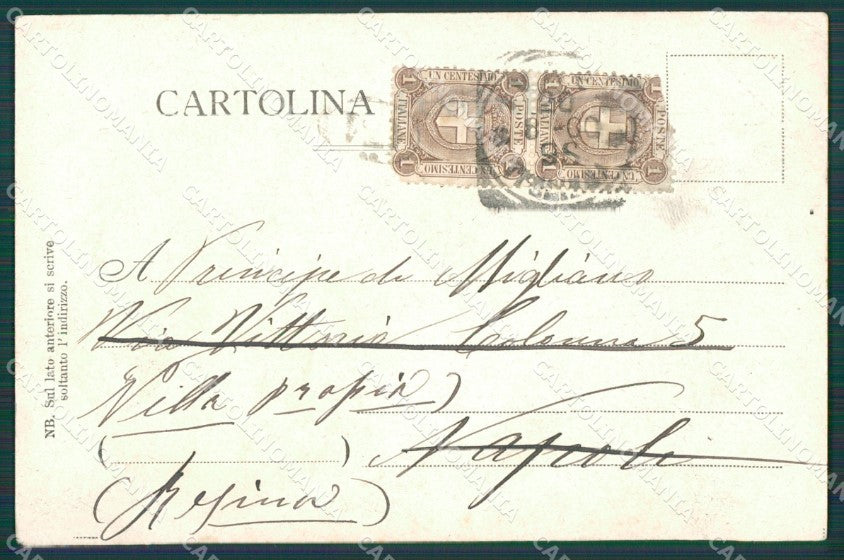 CARTOLINA
UN CENTESIMO
ITALIANE
POSTE
1
UN CENTESIMO
UN CENTESIMO
POSTE
1
UN CENTESIMO
98
A Principe di Migliano
Via Vittoria Colonna 5
Villa propia)
( ) Napoli
(Resina)
NB. Sul lato anteriore si scrive
soltanto l' indirizzo.
CARTOLINOMANIA